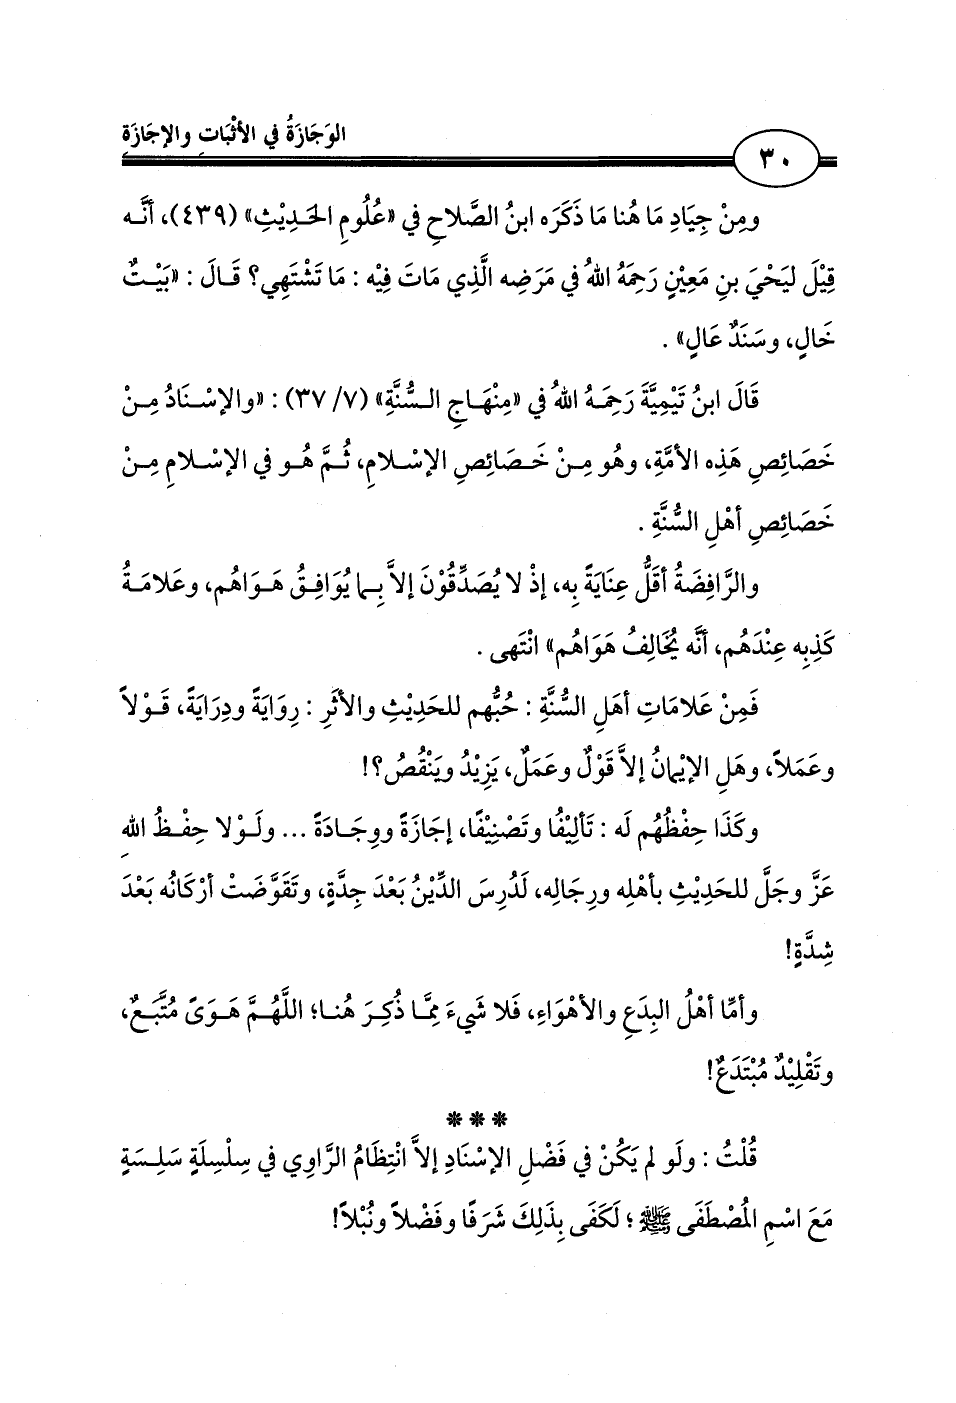 الوَجَازَةُ في الأثْبَاتِ والإجَازَةِ
٣٠
ومِنْ جِيَادِ مَا هُنا مَا ذَكَرَه ابنُ الصَّلاحِ في «عُلُومِ الحَدِيْثِ» (٤٣٩)، أنَّه
قِيْلَ ليَحْيَ بنِ مَعِيْنٍ رَحِمَهُ اللهُ في مَرَضِه الَّذِي مَاتَ فِيْه : مَا تَشْتَهِي؟ قَالَ : «بَيْتٌ
خَالٍ، وسَنَدٌ عَالٍ» .
قَالَ ابنُ تَيْمِيَّةَ رَحِمَهُ اللهُ في «مِنْهَاجِ السُّنَّةِ» (٧/ ٣٧) : «والإسْنَادُ مِنْ
خَصَائِصِ هَذِه الأمَّةِ، وهُو مِنْ خَصَائِصِ الإسْلامِ، ثُمَّ هُو في الإسْلامِ مِنْ
خَصَائِصِ أهْلِ السُّنَّةِ .
والرَّافِضَةُ أقَلُّ عِنَايَةً بِه، إذْ لا يُصَدِّقُوْنَ إلاَّ بِما يُوَافِقُ هَوَاهُم، وعَلامَةُ
كَذِبِه عِنْدَهُم، أنَّه يُخَالِفُ هَوَاهُم» انْتَهى .
فَمِنْ عَلامَاتِ أهَلِ السُّنَّةِ : حُبُّهم للحَدِيْثِ والأثَرِ : رِوَايَةً ودِرَايَةً، قَوْلاً
وعَمَلاً، وهَلِ الإيْمَانُ إلاَّ قَوْلٌ وعَمَلٌ، يَزِيْدُ ويَنْقُصُ؟!
وكَذَا حِفْظُهُم لَه : تَألِيْفًا وتَصْنِيْفًا، إجَازَةً ووِجَادَةً ... ولَوْلا حِفْظُ اللهِ
عَزَّ وجَلَّ للحَدِيْثِ بأهْلِه ورِجَالِه، لَدُرِسَ الدِّيْنُ بَعْدَ جِدَّةٍ، وتَقَوَّضَتْ أرْكَانُه بَعْدَ
شِدَّةٍ!
وأمَّا أهْلُ البِدَعِ والأهْوَاءِ، فَلا شَيءَ مِمَّا ذُكِرَ هُنا؛ اللَّهُمَّ هَوَىً مُتَّبَعٌ،
وتَقْلِيْدٌ مُبْتَدَعٌ!
***
قُلْتُ : ولَو لم يَكُنْ في فَضْلِ الإسْنَادِ إلاَّ انْتِظَامُ الرَّاوِي في سِلْسِلَةٍ سَلِسَةٍ
مَعَ اسْمِ المُصْطَفَى ﷺ؛ لَكَفَى بِذَلِكَ شَرَفًا وفَضْلاً ونُبْلاً!